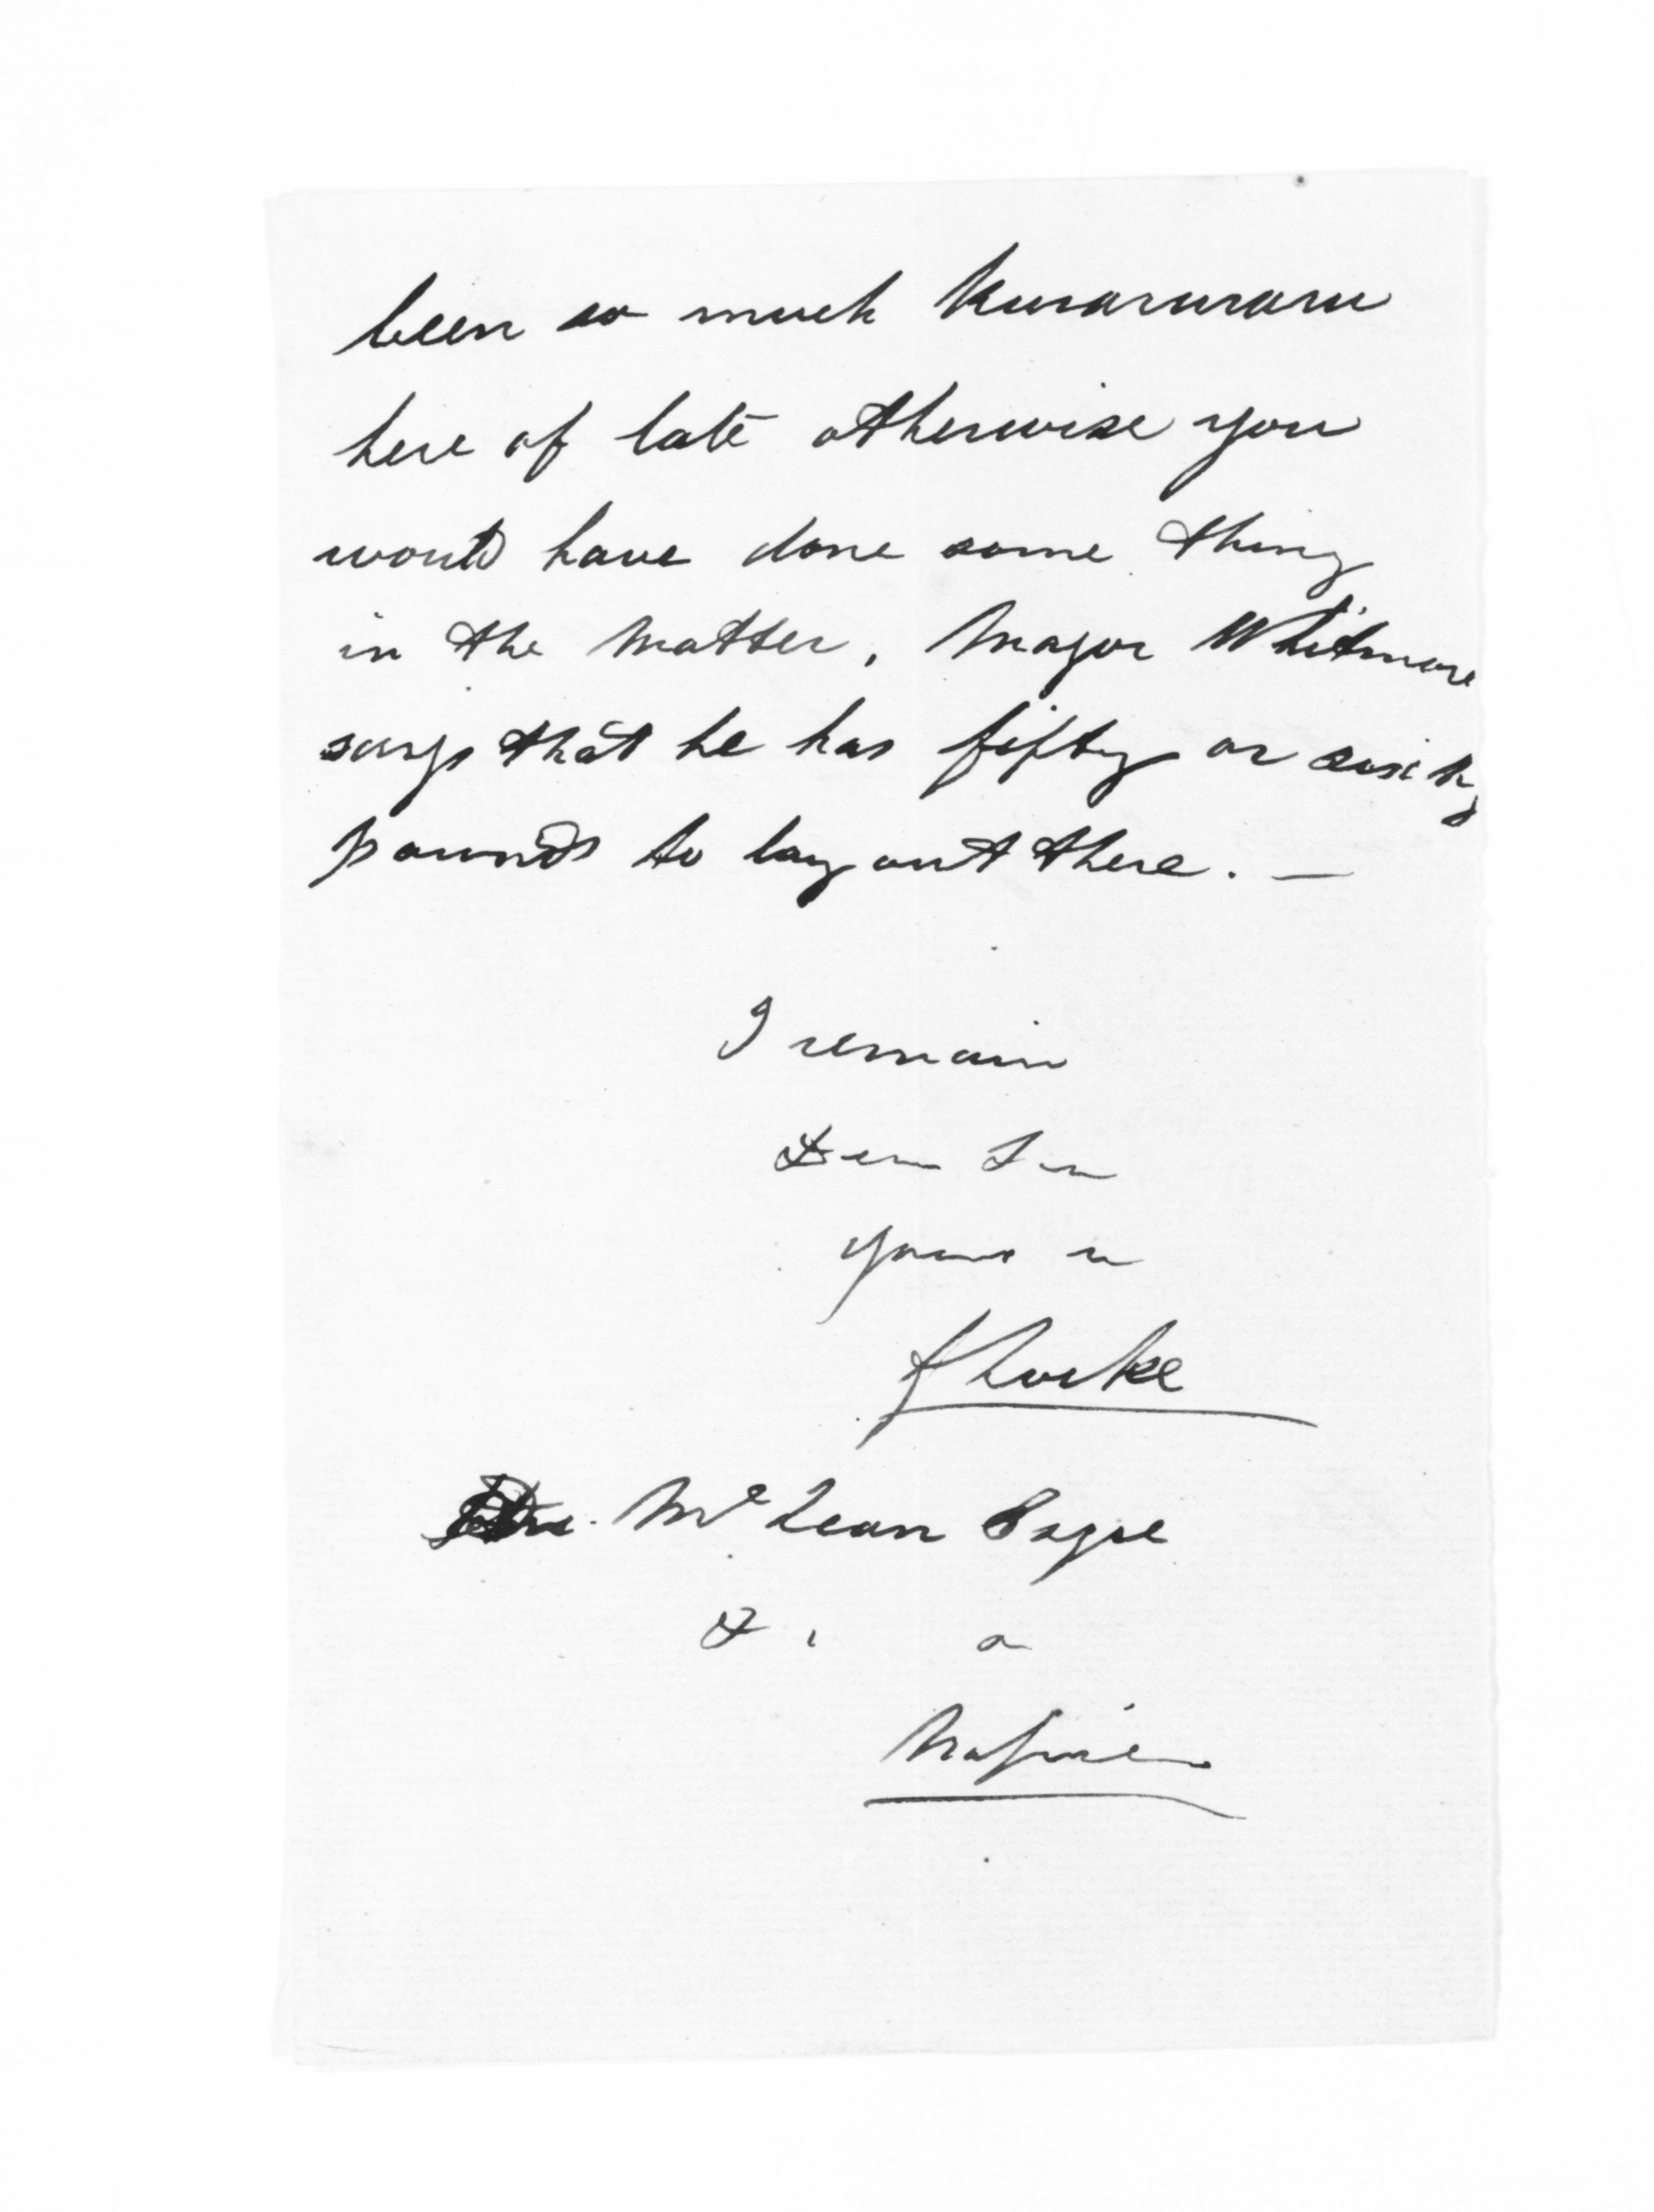 been so much
here of late otherwise you
would have done some thing
in the Matter, Major Whitmore
says that he has fifty or sixty
pounds to lay out there. —
I remain
Dear Sir
Yours
S Locke
McLean Esqre
&
Napier